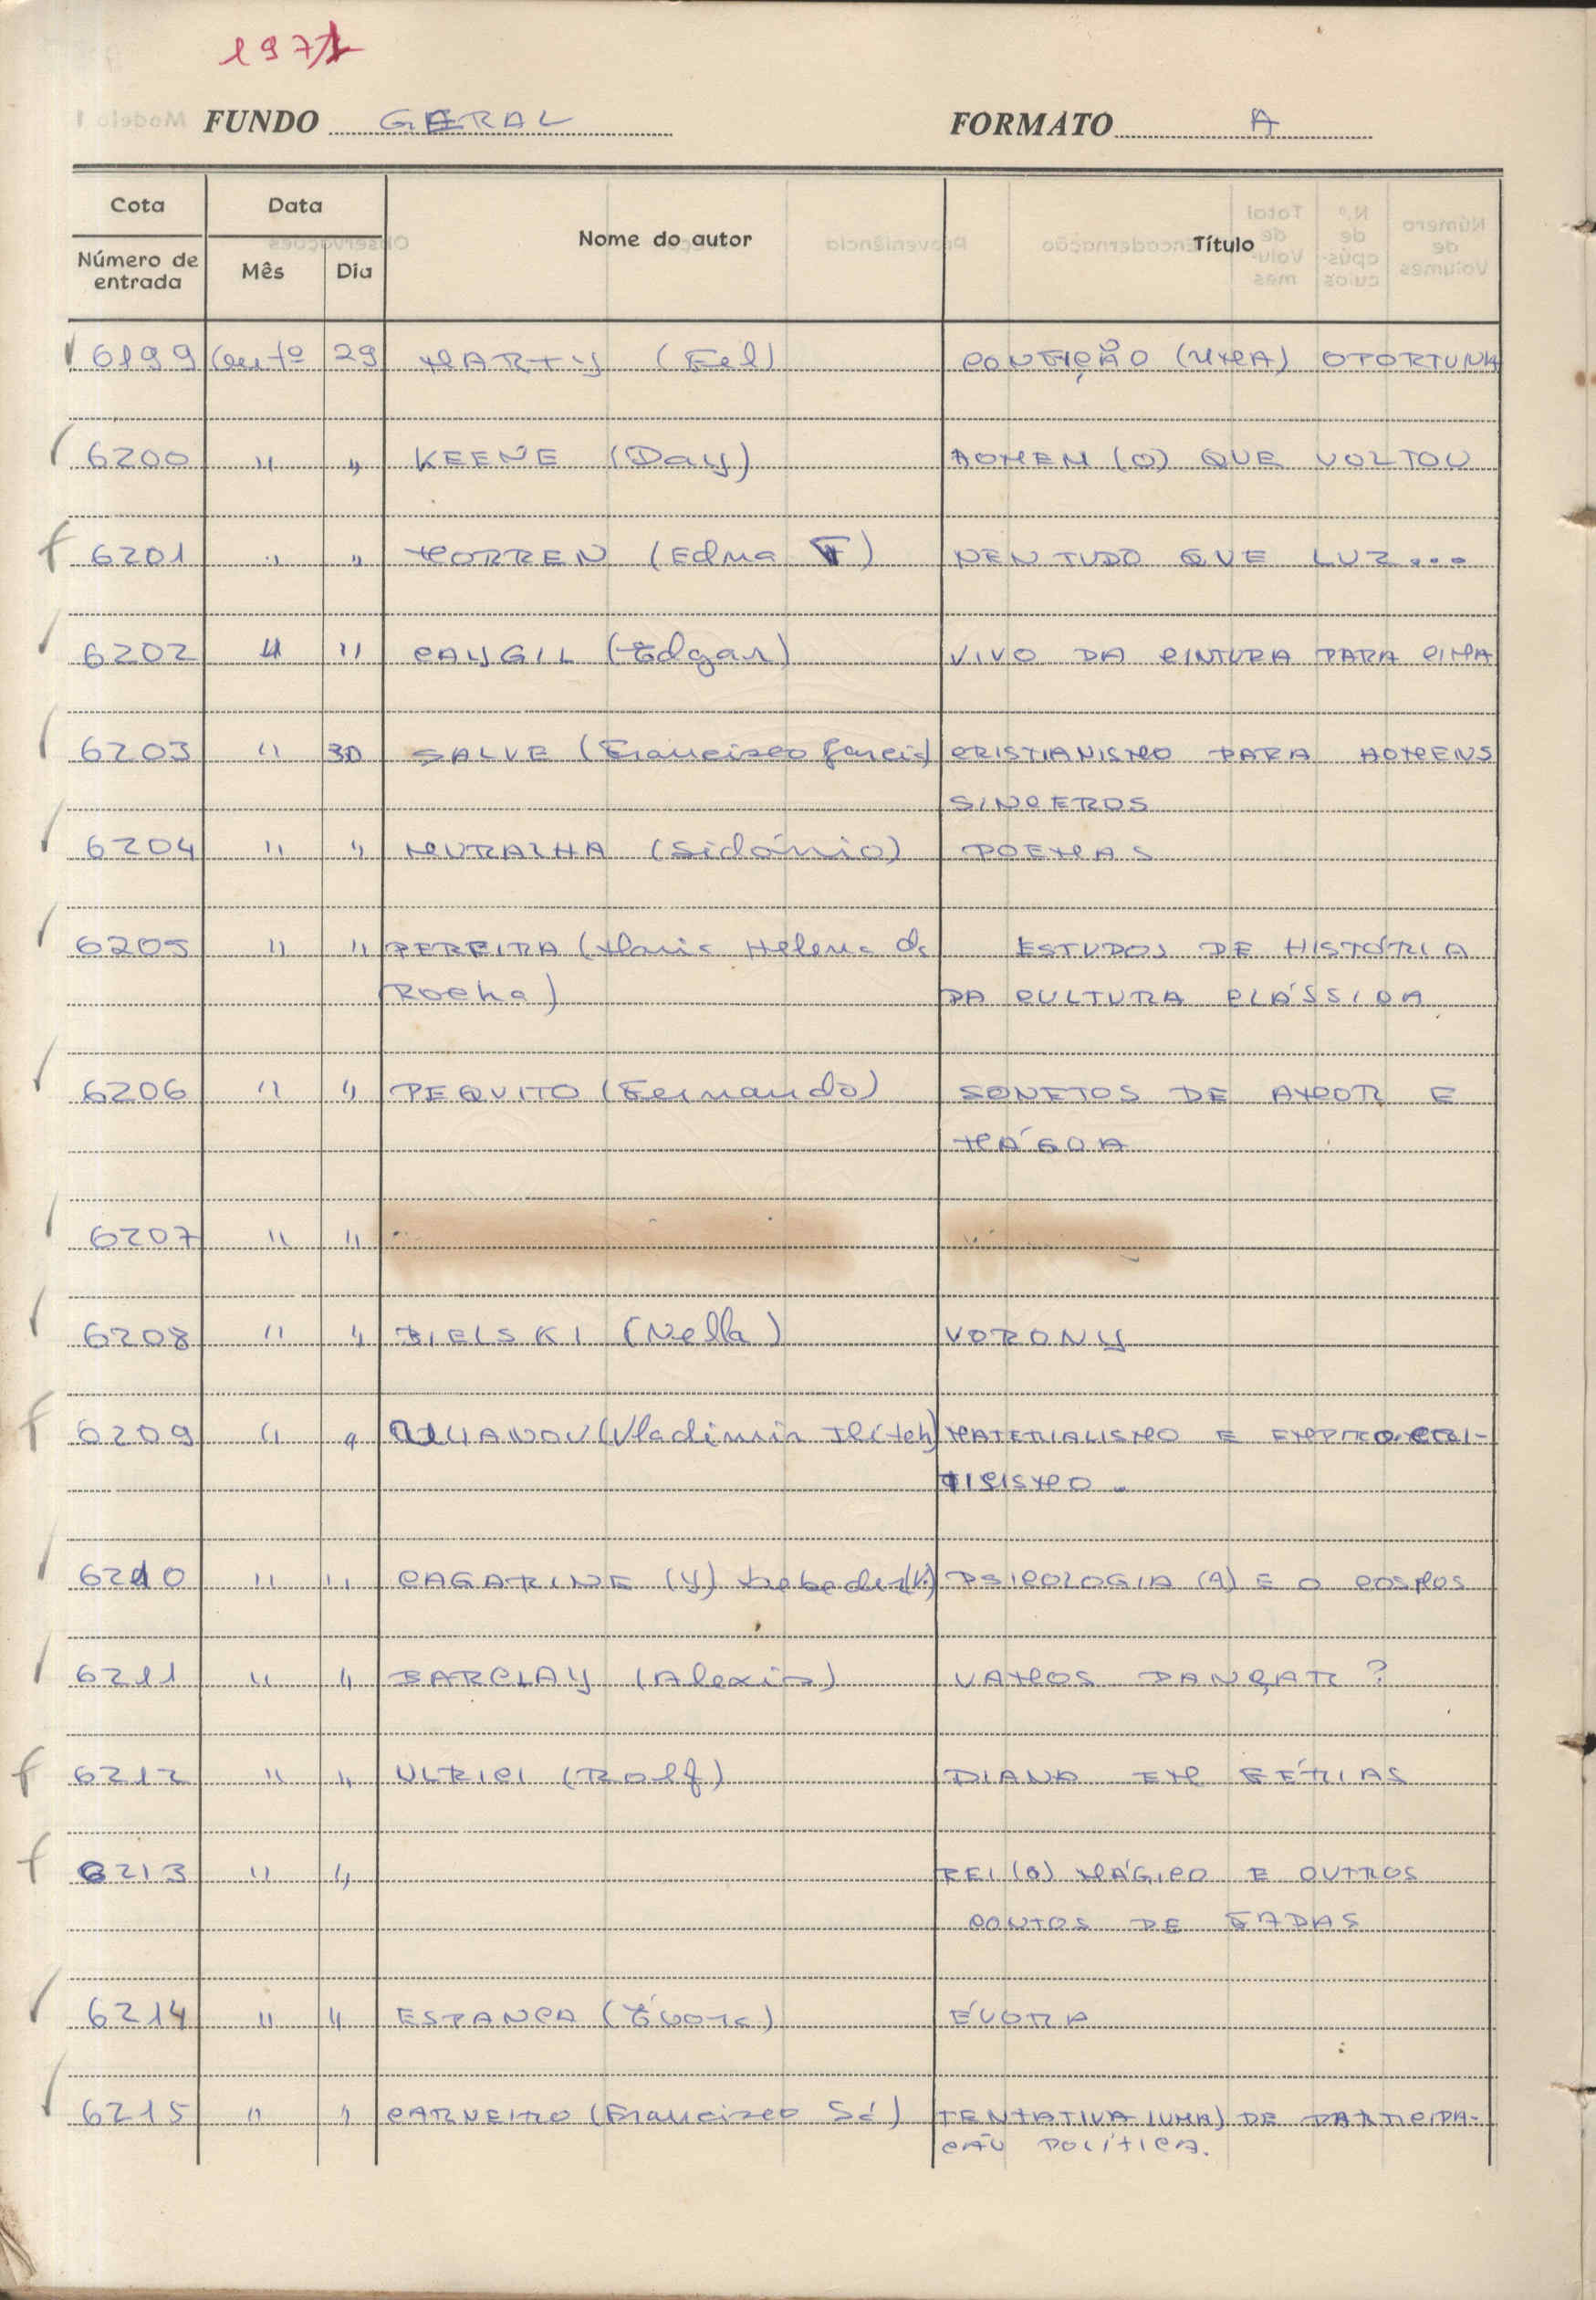 1971
FUNDO GERAL FORMATO A
Cota Data Nome do autor Título
Número de entrada Mês Dia
6199 Outº 29 MARTY (Fel) CONFIÇÃO (UMA) OPORTUNA
6200 " " KEENE (Day) HOMEM (O) QUE VOLTOU
6201 " " MORREN (Edma F) NEN TUDO QUE LUZ...
6202 " " CAYGIL (Edgar) VIVO DA CINTURA PARA CIMA
6203 " 30 SALVE (Francisco Garcia) CRISTIANISMO PARA HOMENS
SINCEROS
6204 " " MURALHA (Sidónio) POEMAS
6205 " " PEREIRA (Maria Helena da ESTUDOS DE HISTÓRIA
Rocha) DA CULTURA CLÁSSICA
6206 " " PEQUITO (Fernando) SONETOS DE AMOR E
MÁGOA
6207 " "
6208 " " BIELSKI (Nella) VORONY
6209 " " ULIANOV (Vladimir Ilitch) MATERIALISMO E EMPIROCRI-
TICISMO.
6210 " " GAGARINE (Y) Lebedev (V.) PSICOLOGIA (A) E O COSMOS
6211 " " BARCLAY (Alexis) VAMOS DANÇAR ?
6212 " " ULRICI (Rolf) DIANA EM FÉRIAS
6213 " " REI (O) MÁGICO E OUTROS
CONTOS DE FADAS
6214 " " ESPANCA (Évora) ÉVORA
6215 " " CARNEIRO (Francisco Sá) TENTATIVA (UMA) DE PARTICIPA-
ÇÃO POLÍTICA.